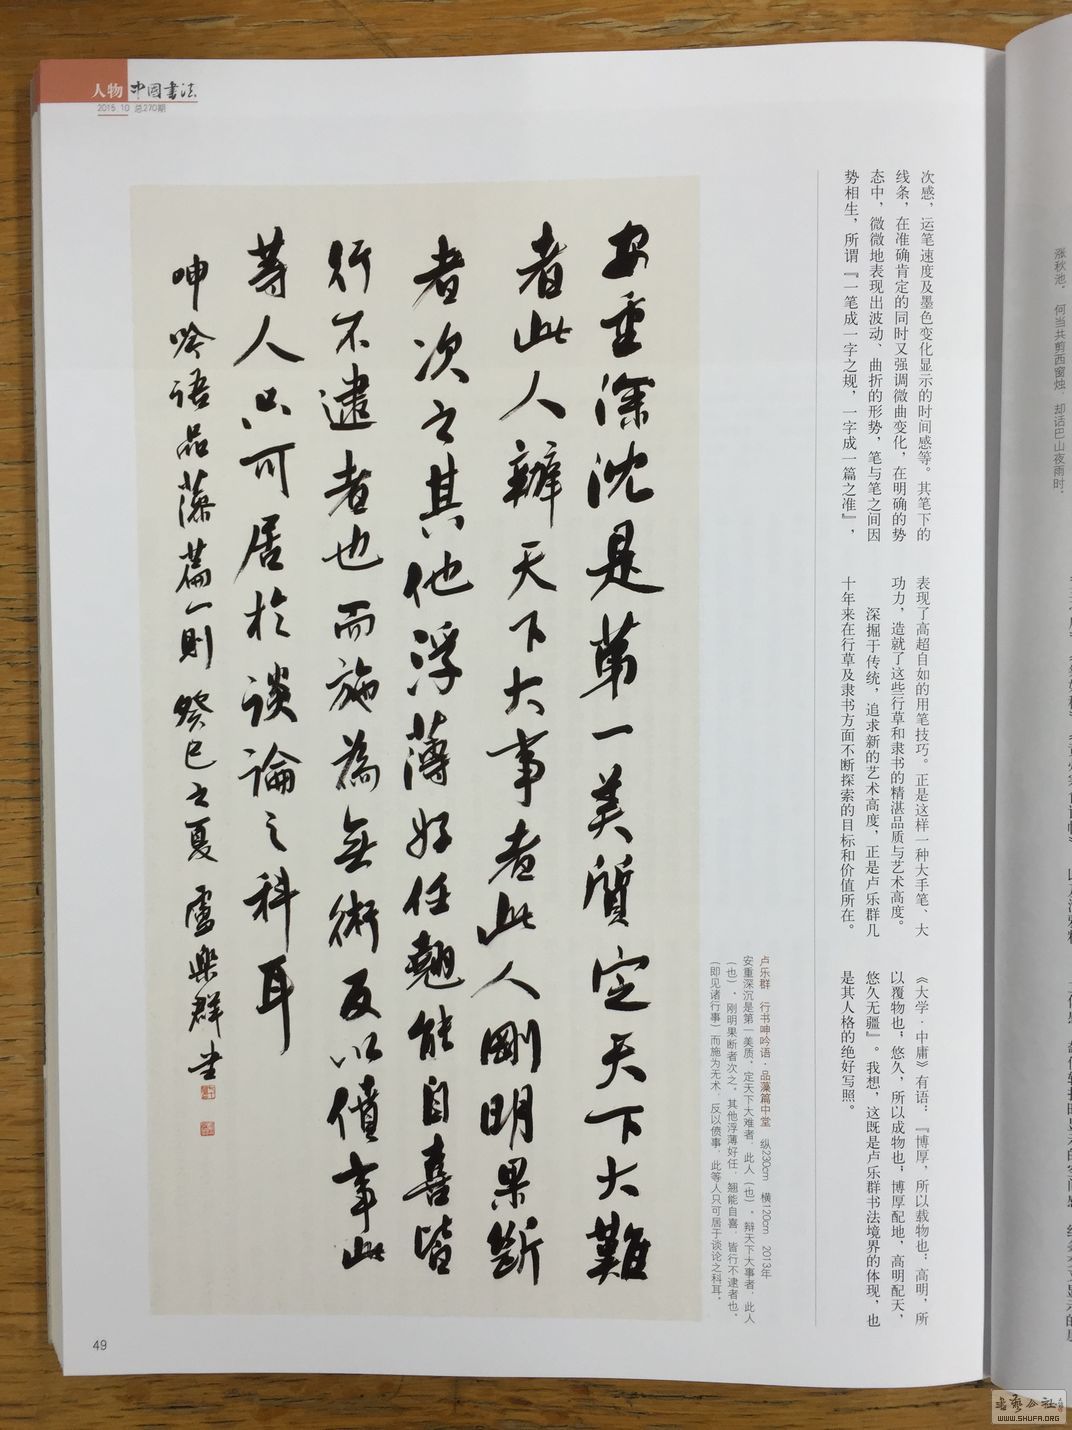 人物 中国书法
2015.10 总270期
次感，运笔速度及墨色变化显示的时间感等。其笔下的
线条，在准确肯定的同时又强调微曲变化，在明确的势
态中，微微地表现出波动、曲折的形势，笔与笔之间因
势相生，所谓『一笔成一字之规，一字成一篇之准』，
表现了高超自如的用笔技巧。正是这样一种大手笔、大
功力，造就了这些行草和隶书的精湛品质与艺术高度。
深掘于传统，追求新的艺术高度，正是卢乐群几
十年来在行草及隶书方面不断探索的目标和价值所在。
《大学·中庸》有语：『博厚，所以载物也；高明，所
以覆物也；悠久，所以成物也；博厚配地，高明配天，
悠久无疆』。我想，这既是卢乐群书法境界的体现，也
是其人格的绝好写照。
卢乐群 行书呻吟语·品藻篇中堂 纵230cm 横120cm 2013年
安重深沉是第一美质。定天下大难者，此人（也）。辩天下大事者，此人
（也），刚明果断者次之。其他浮薄好任，翘能自喜，皆行不逮者也。
（即见诸行事）而施为无术，反以偾事，此等人只可居于谈论之科耳。
安重深沈是第一美質定天下大難
者此人辦天下大事者此人剛明果斷
者次之其他浮薄好任翹能自喜皆
行不逮者也而施為無術反以僨事此
等人只可居於談論之科耳
呻吟语品藻篇一則 癸巳之夏 盧樂群書
49
涨秋池。何当共剪西窗烛，却话巴山夜雨时。
书艺公社
WWW.SHUFA.ORG